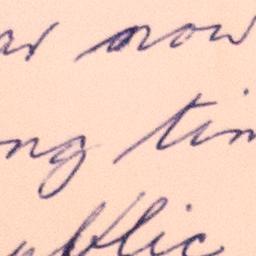 ar now
ng tim
ublic